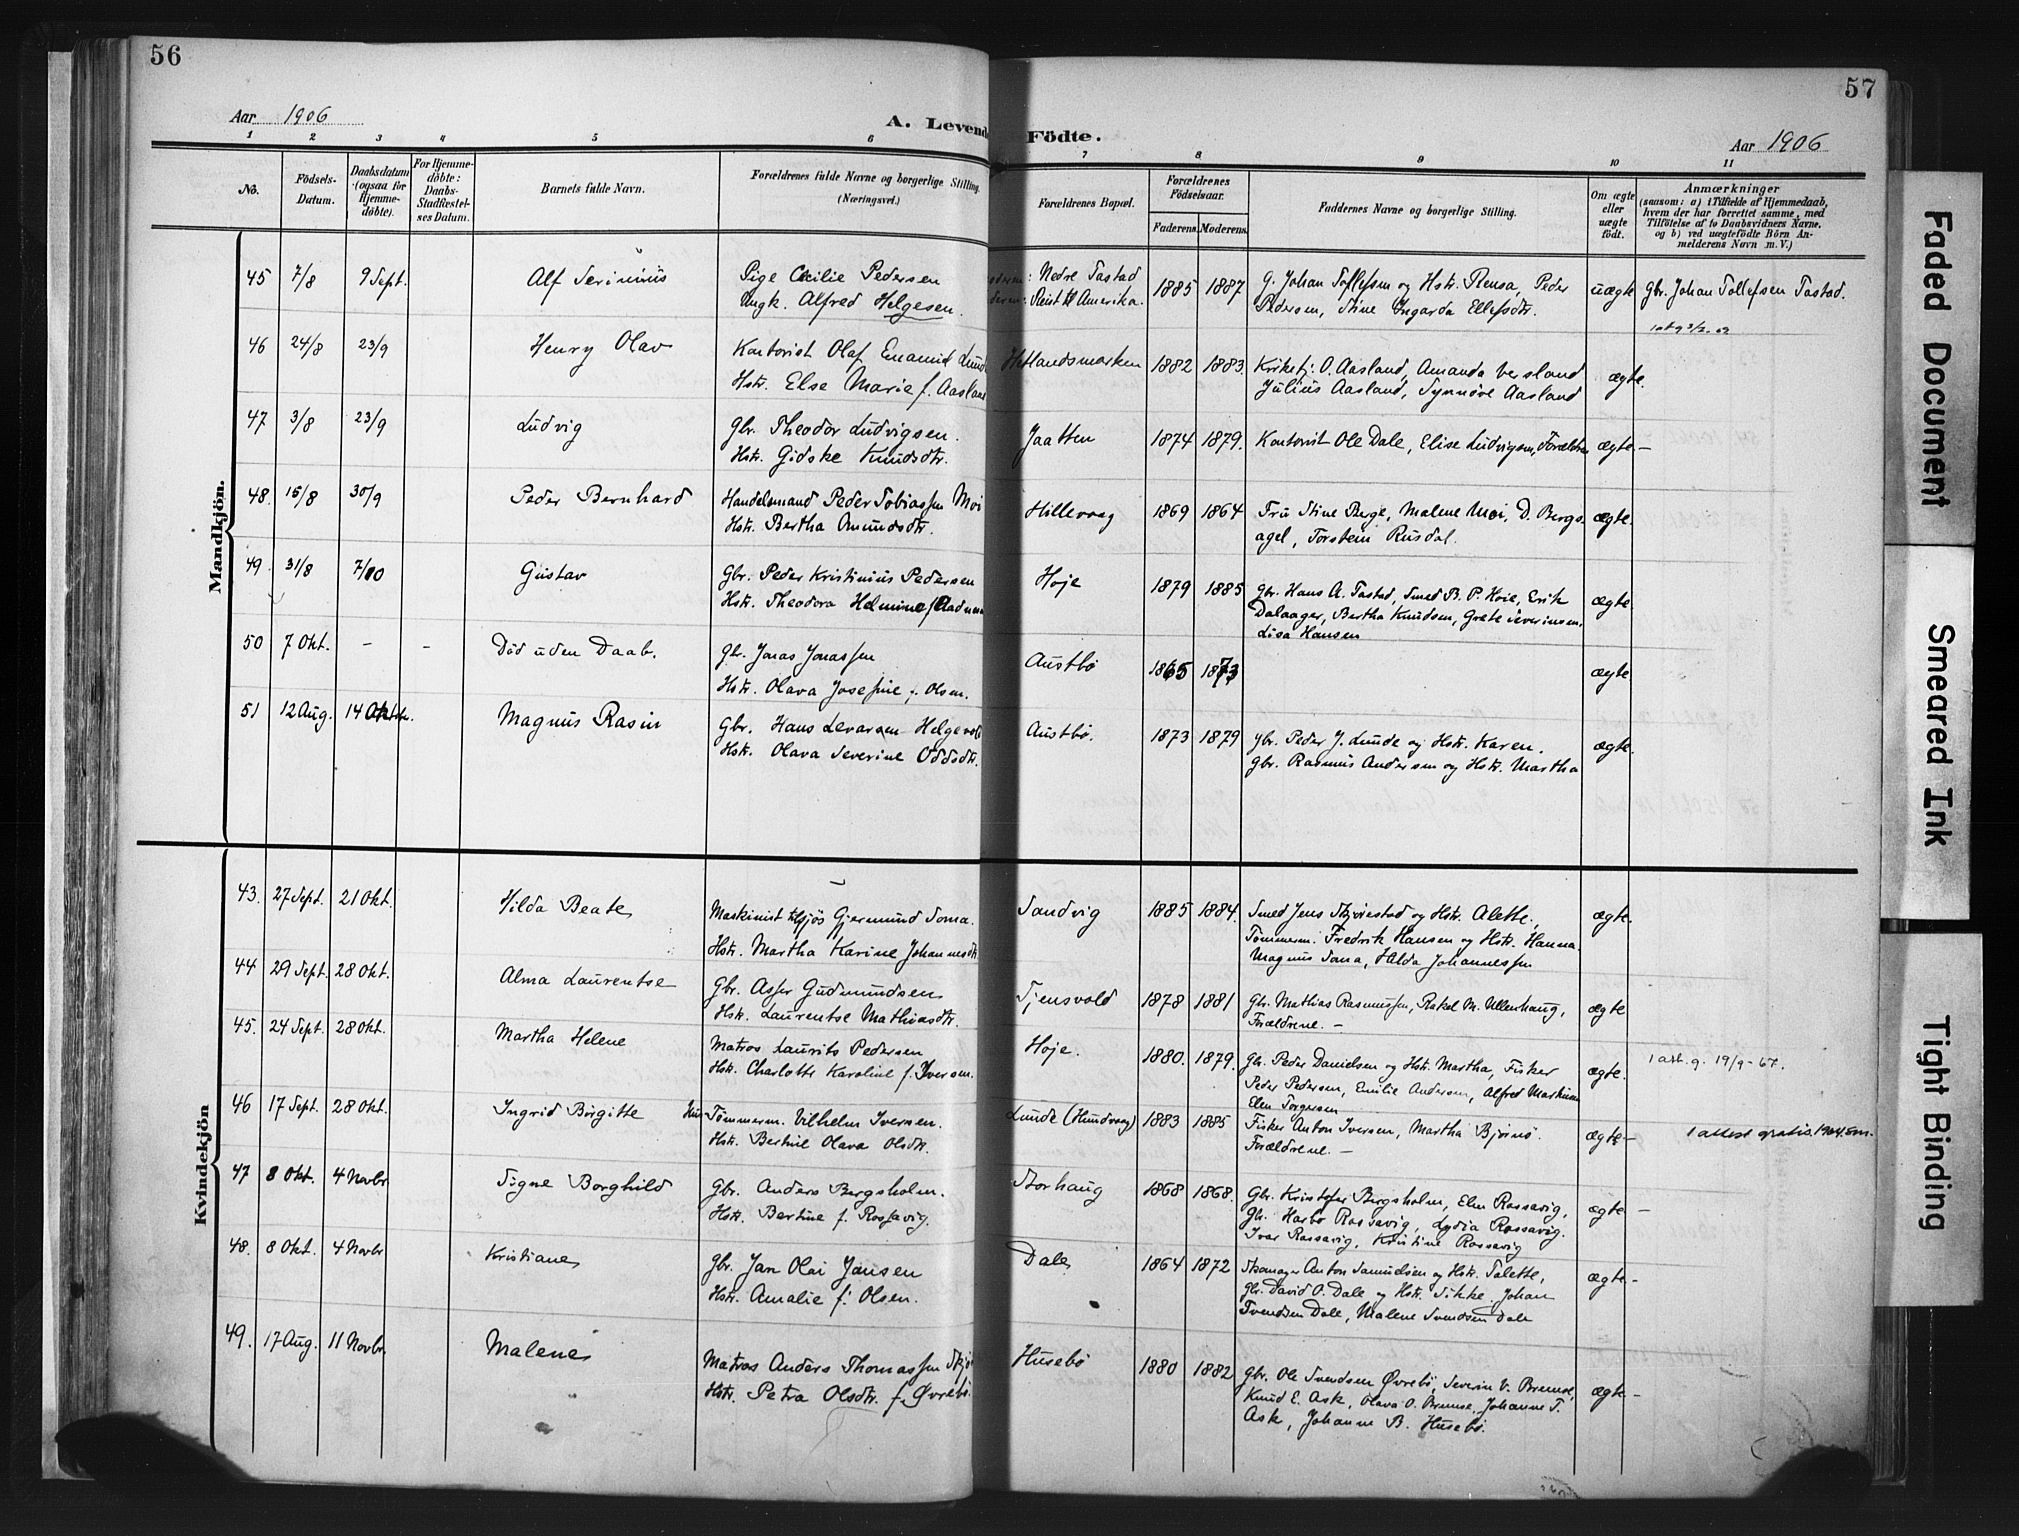 56
57
Aar 1906
A. Levende
Födte.
Aar 1906
1 2 3 4 5 6 7 8 9 10 11
No.
Födsels-
Datum.
Daabsdatum
(ogsaa for
Hjemme-
döbte).
For Hjemme-
döbte:
Daabs-
Stadfæstel-
ses Datum.
Barnets fulde Navn.
Forældrenes fulde Navne og borgerlige Stilling.
(Næringsvei.)
Forældrenes Bopæl.
Forældrenes
Födselsaar.
Faderens. Moderens.
Faddernes Navne og borgerlige Stilling.
Om ægte
eller
uægte
födt.
Anmærkninger
(saasom: a) i Tilfælde af Hjemmedaab,
hvem der har forrettet samme, med
Tilföielse af to Daabsvidners Navne.
og b) ved uægtefödte Börn An-
melderens Navn m. V.)
Mandkjön.
45 7/8 9 Sept. Alf Serinius Pige Cecilie Pedersen Nedre Tastad 1885 1887 G. Johan Tollefsen og Hstr. Rensa, Peder uægte Gbr. Johan Tollefsen Tastad.
Ungk. Alfred Helgesen. Reist til Amerika. Pedersen, Stine Ingarda Ellefsdtr.
46 24/8 23/9 Henry Olav Kontorist Olaf Emanuel Lund Hetlandsmarken 1882 1883. Kirketj. O. Aasland, Amanda Versland ægte.
Hstr. Else Marie f. Aasland Julius Aasland, Synnöve Aasland
47 3/8 23/9 Ludvig Gbr. Theodor Ludvigsen. Jaatten 1874 1879. Kontorist Ole Dale, Elise Ludvigsen, Forældrene ægte.-
Hstr. Gidske Knudsdtr.
48. 15/8 30/9 Peder Bernhard Handelsmand Peder Tobiassen Moi Hillevaag 1869 1864 Fru Stine Berge, Malene Moi, D. Bergs- ægte.
Hstr. Bertha Amundsdtr. agel, Torstein Rusdal.
49. 31/8 7/10 Gustav Gbr. Peder Kristinius Pedersen Hoje 1879 1885 Gbr. Hans A. Tastad, Smed B. P. Hoie, Erik ægte.
Hstr. Theodora Helmine f. Dalaager, Bertha Knudsen, Grete Severinsen,
Lisa Hansen
50 7 Okt. - - Död uden Daab. Gbr. Jonas Jonassen Austbö 1865 1873 ægte.
Hstr. Olava Josefine f. Olsen.
51 12 Aug. 14 Oktbr. Magnus Rasin Gbr. Hans Levarsen Helgevold Austbö. 1873 1879 Gbr. Peder J. Lunde og Hstr. Karen. ægte.
Hstr. Olava Severine Oddsdtr. Gbr. Rasmus Andersen og Hstr. Martha
Kvindekjön
43. 27 Sept. 21 Okt. Hilda Beate Maskinist Gjermund Soma. Sandvig 1885 1884. Smed Jens Skjörestad og Hstr. Alette, ægte.
Hstr. Martha Karine Johannesdtr. Tömmerm. Fredrik Hansen og Hstr. Hanna.
Magnus Soma, Hilda Johannessen
44 29 Sept. 28 Okt. Alma Laurentse Gbr. Asser Gudmundsen Tjensvold 1878 1881 Gbr. Mathias Rasmussen, Rakel M. Ullenhaug, ægte
Hstr. Laurentse Mathiasdtr. Forældrene. -
45. 24 Sept. 28 Okt. Martha Helene Matros Laurits Pedersen Hoje. 1880. 1879. Gbr. Peder Danielsen og Hstr. Martha, Fisker ægte. 1 att. g. 19/9-67.
Hstr. Charlotte Karoline f. Iversen. Peder Pedersen, Emilie Andersen, Alfred Markussen
Elen Torgersen
46 17 Sept. 28 Okt. Ingrid Birgitte Tömmerm. Vilhelm Iversen. Lunde (Hundvaag) 1883 1885 Fisker Anton Iversen, Martha Bjørnö. ægte- 1 attest gratis.
Hstr. Bertine Olava Olsdtr. Forældrene. -
47 8 Okt. 4 Novbr Signe Borghild Gbr. Anders Bergsholm. Storhaug 1868 1868. Gbr. Kristofer Bergsholm, Elen Rossavig, ægte-
Hstr. Bertine f. Rossavig. Gbr. Harbo Rossavig, Lydia Rossavig.
Ivar Rossavig, Kristine Rossavig
48. 8 Okt. 4 Novbr Kristiane Gbr. Jan Olai Jansen Dale 1864 1872 Skomager Anton Samuelsen og Hstr. Talette, ægte-
Hstr. Amalie f. Olsen. Gbr. David O. Dale og Hstr. Sikke. Johan
Svendsen Dale, Malene Svendsen Dale
49. 17 Aug. 11 Novbr. Malene Matros Anders Thomassen Husebö 1880 1882 Gbr. Ole Svendsen Øvrebö, Severin V. Bremse, ægte-
Hstr. Petra Olsdtr. f. Øvrebö. Knud E. Ask, Olava O. Bremse, Johanne T.
Ask, Johanne B. Husebö.
Faded Document
Smeared Ink
Tight Binding